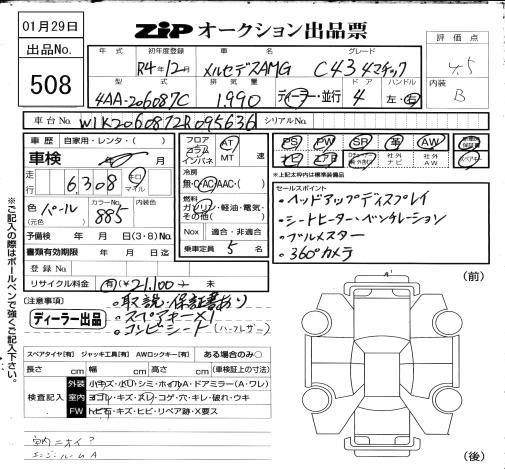 01月29日
ZIP オークション出品票
出品No.
508
評価点
4.5
内装
B
年式 初年度登録 車名 グレード
R4年12月 メルセデスAMG C43 4マチック
型式 排気量 ドア ハンドル
4AA-206087C 1,990 ディーラー・並行 4 左・右
車台No. W1K2060872R095636 シリアルNo.
車歴 自家用・レンタ・( )
車検 年 月
走行 6,308 キロ マイル
色 パール (元色) カラーNo. 885 内装色
予備検 年 月 日(3・8)No.
書類有効期限 年 月 日迄
登録No.
リサイクル料金 有(¥21,100) 未
フロア コラム インパネ AT MT 速
冷房
無・C・AC・AAC・( )
燃料
ガソリン・軽油・電気・その他( )
Nox 適合・非適合
乗車定員 5 名
PS PW SR 革 AW
ナビ エアB 社外ナビ 社外AW
保証書 スペアキー
※上記太枠内は標準装備品
セールスポイント
・ヘッドアップディスプレイ
・シートヒーター・ベンチレーション
・ブルメスター
・360°カメラ
(注意事項)
・取説・保証書あり
・スペアキー×1
・コンビシート(ハーフレザー)
ディーラー出品
※ご記入の際はボールペンで強くご記入下さい。
スペアタイヤ[有] ジャッキ工具[有] AWロックキー[有] ある場合のみ○
長さ cm 幅 cm 高さ cm (車検証上の寸法)
検査記入
外装 小キズ・小U・シミ・ホイルA・ドアミラー(A・ワレ)
室内 ヨゴレ・キズ・スレ・コゲ・穴・キレ・破れ・ウキ
FW トビ石・キズ・ヒビ・リペア跡・X要ス
室内ニオイ?
エンジンルームA
A'
(前)
(後)